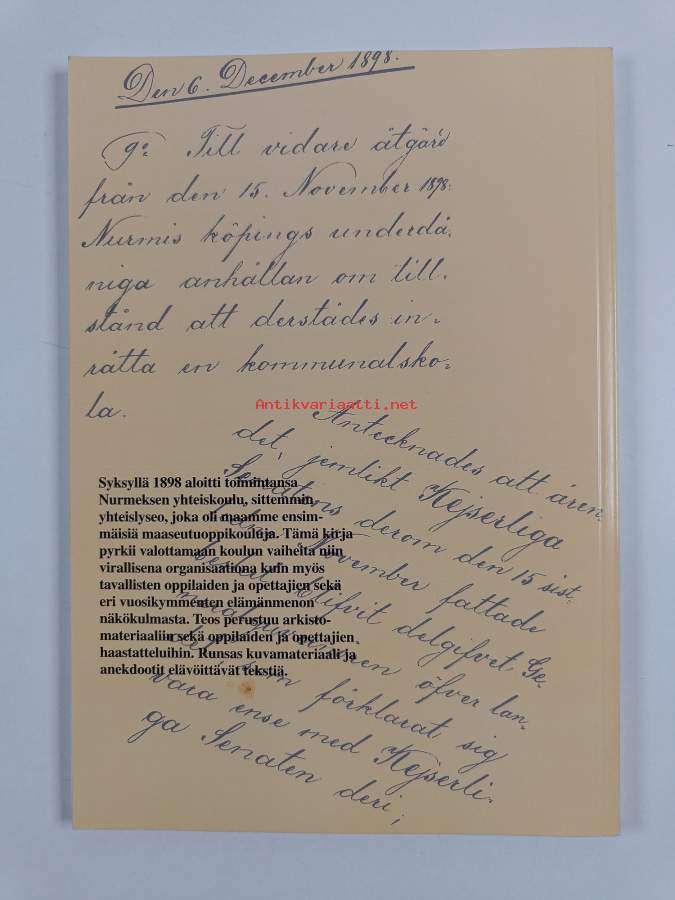 Den 6. December 1898.
9:o Till vidare åtgörd
från den 15. November 1898:
Nurmis köpings underdå,
niga anhållan om till,
stånd att derstädes in,
rätta en kommunalsko,
la.
Antikvariaatti.net
Antecknades att ären,
det, jemlikt Kejserliga
Senatens derom den 15 sist,
November fattade
blifvit delgifvet Ge,
öfver lan,
som förklarat sig
vara ense med Kejserli,
ga Senaten deri;
Syksyllä 1898 aloitti toimintansa
Nurmeksen yhteiskoulu, sittemmin
yhteislyseo, joka oli maamme ensim-
mäisiä maaseutuoppikouluja. Tämä kirja
pyrkii valottamaan koulun vaiheita niin
virallisena organisaationa kuin myös
tavallisten oppilaiden ja opettajien sekä
eri vuosikymmenten elämänmenon
näkökulmasta. Teos perustuu arkisto-
materiaaliin sekä oppilaiden ja opettajien
haastatteluihin. Runsas kuvamateriaali ja
anekdootit elävöittävät tekstiä.